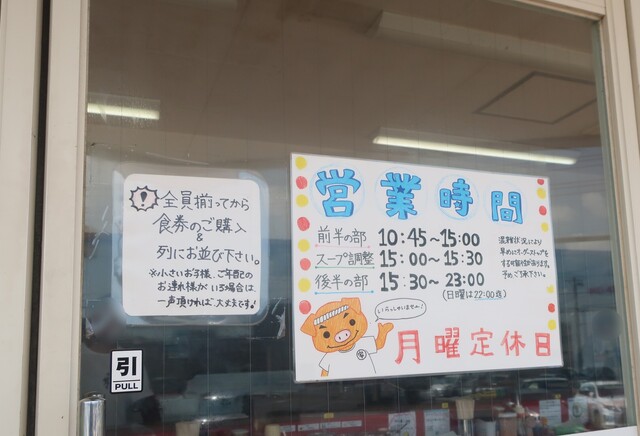 全員揃ってから
食券のご購入
&
列にお並び下さい。
※小さいお子様、ご年配の
お連れ様がいる場合は、
一声頂ければ大丈夫です!
引
PULL
営業時間
前半の部 10:45~15:00
スープ調整 15:00~15:30
後半の部 15:30~23:00
(日曜は22:00迄)
混雑状況により
早めにオーダーストップを
する可能性があります。
予めご了承下さい。
いらっしゃいませ!
月曜定休日